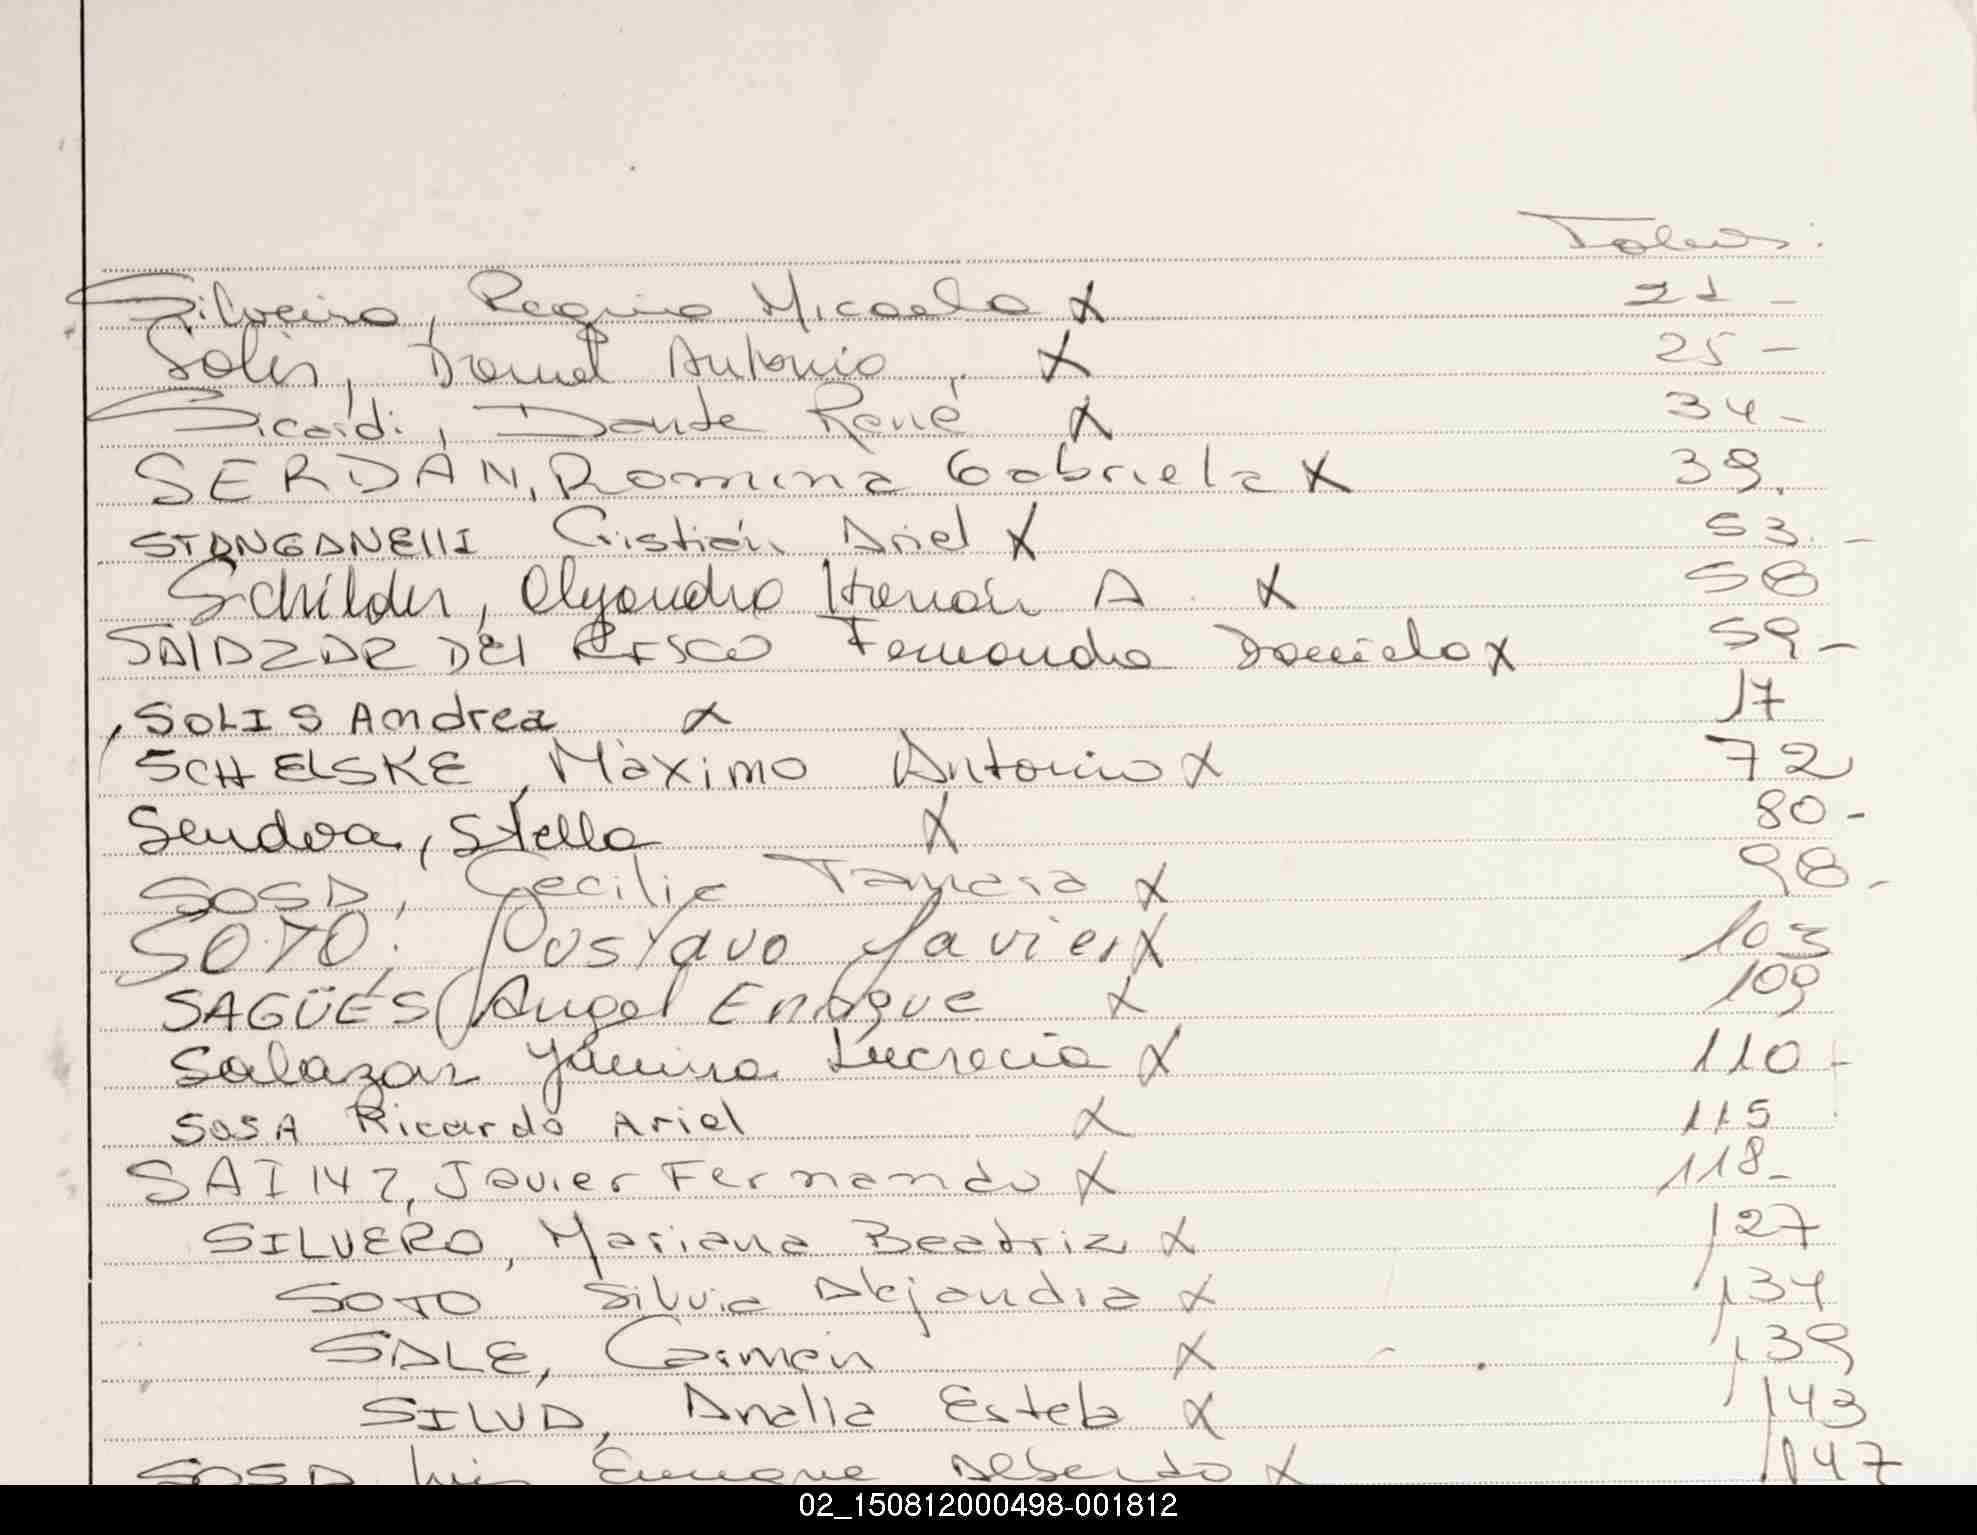 Folios:
Silveira, Regina Micaela X 21 -
Solis, Daniel Antonio, X 25 -
Sicardi, Dante René X 34 -
SERDÁN, Romina Gabriela X 39.
STANGANELLI Cristián Ariel X 53. -
Schilder, Alejandro Hernán A. X 58
SALAZAR DEL RISCO Fernanda Daniela X 59 -
SOLIS Andrea X 17
SCHELSKE, Máximo Antonio X 72
Sendera, Stella X 80 -
SOSA, Cecilia Tamara X 98 -
SOTO, Gustavo Javier X 103
SAGÜÉS, Angel Enrique X 109
Salazar Yamina Lucrecia X 110 -
SOSA Ricardo Ariel X 115
Javier Fernando X 118 -
SILVERO, Mariana Beatriz X 127
SOTO Silvia Alejandra X 134
SALE, Carmen X 139
SILVA, Analia Estela X 143
SOSA Luis Enrique Alberto X 147
02_150812000498-001812